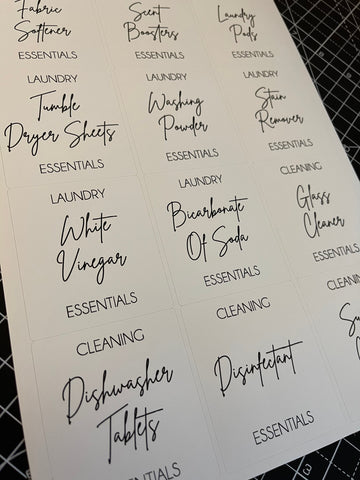 Fabric
Softener
ESSENTIALS
Scent
Boosters
ESSENTIALS
Laundry
Pods
ESSENTIALS
LAUNDRY
Tumble
Dryer Sheets
ESSENTIALS
LAUNDRY
Washing
Powder
ESSENTIALS
LAUNDRY
Stain
Remover
ESSENTIALS
LAUNDRY
White
Vinegar
ESSENTIALS
LAUNDRY
Bicarbonate
Of Soda
ESSENTIALS
CLEANING
Glass
Cleaner
ESSENTIALS
CLEANING
Dishwasher
Tablets
ESSENTIALS
CLEANING
Disinfectant
ESSENTIALS
CLEANING